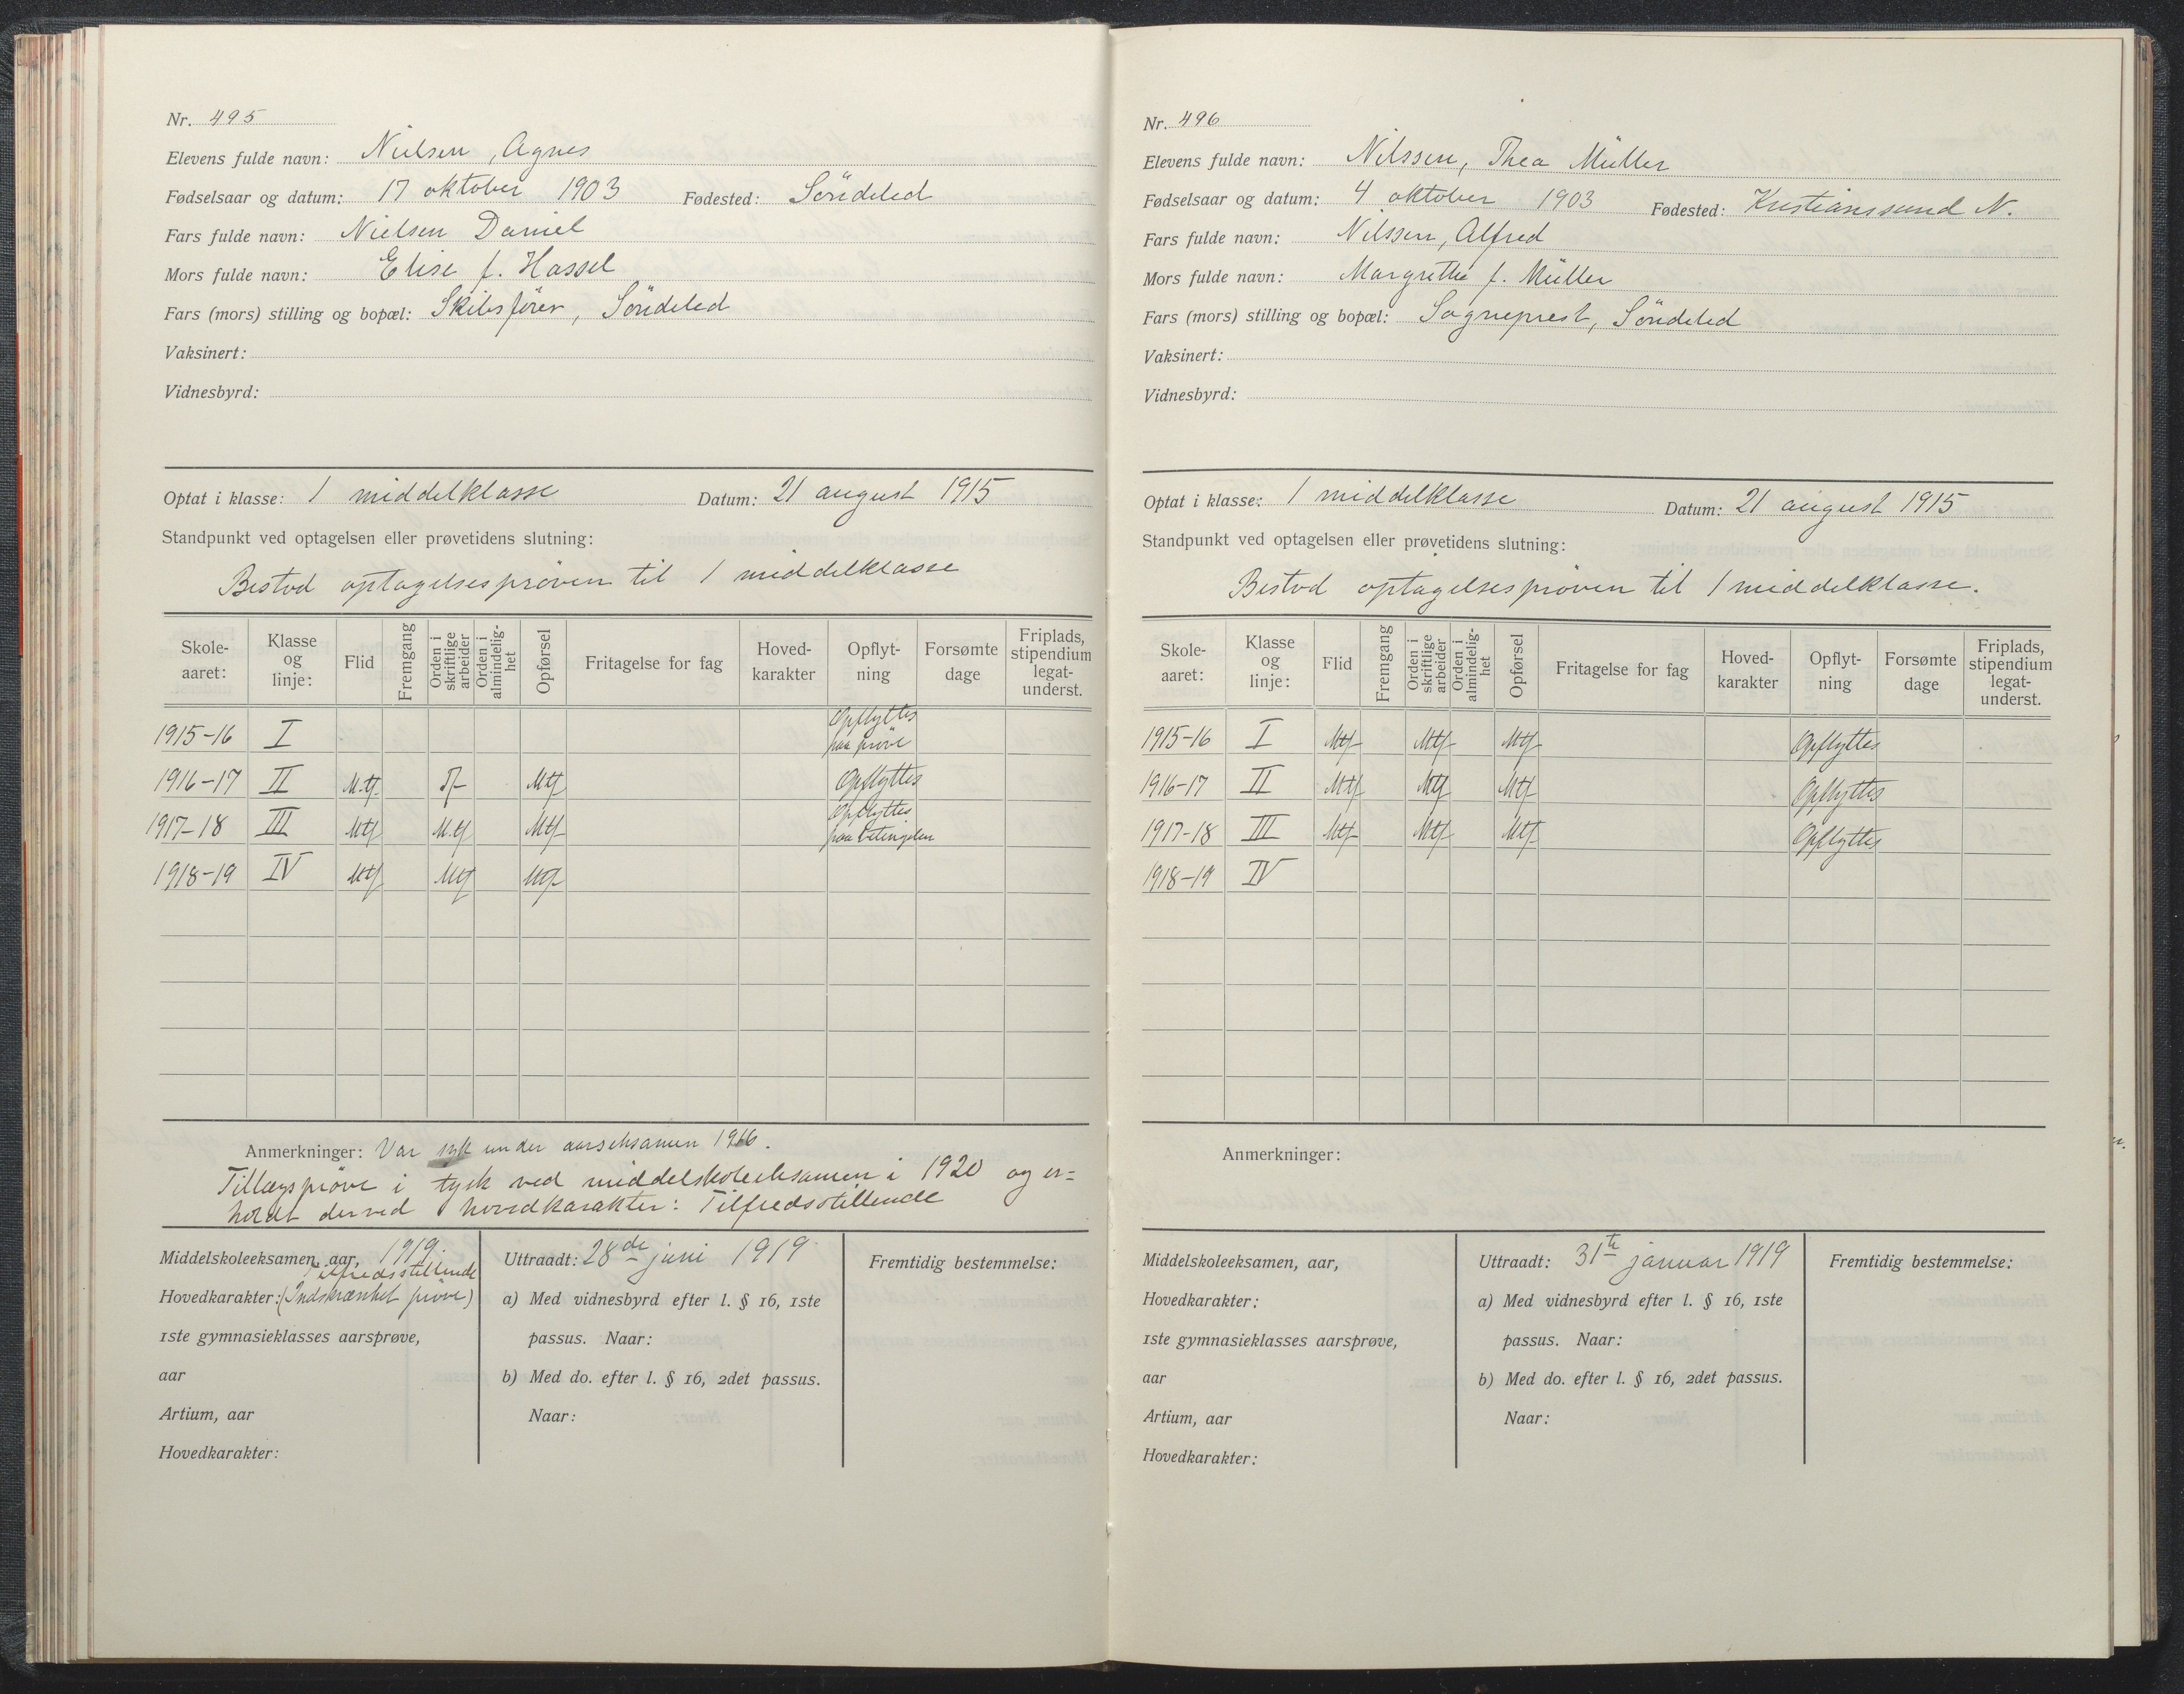 Nr. 495
Elevens fulde navn: Nielsen, Agnes
Fødselsaar og datum: 17 oktober 1903 Fødested: Söndeled
Fars fulde navn: Nielsen Daniel
Mors fulde navn: Elise f. Hassel
Fars (mors) stilling og bopæl: Skibsförer, Söndeled
Vaksinert:
Vidnesbyrd:
Optat i klasse: 1 middelklasse Datum: 21 august 1915
Standpunkt ved optagelsen eller prøvetidens slutning:
Bestod optagelsespröven til 1 middelklasse
Skole-aaret: Klasse og linje: Flid Fremgang Orden i skriftlige arbeider Orden i almindelig-het Opførsel Fritagelse for fag Hoved-karakter Opflyt-ning Forsømte dage Friplads, stipendium legat-underst.
1915-16 I Opflyttes paa pröve
1916-17 II M.tf. Tf Mtf Opflyttes
1917-18 III Mtf M.tf Mtf Opflyttes paa betingelse
1918-19 IV Mtf Mtf Mtf
Anmerkninger: Var syk under aarseksamen 1916.
Tillægspröve i tysk ved middelskoleeksamen i 1920 og er=
holdt derved hovedkarakter: Tilfredsstillende
Middelskoleeksamen, aar, 1919.
Tilfredsstillende
Hovedkarakter: (Indskrænket pröve)
1ste gymnasieklasses aarsprøve,
aar
Artium, aar
Hovedkarakter:
Uttraadt: 28de juni 1919
a) Med vidnesbyrd efter l. § 16, 1ste
passus. Naar:
b) Med do. efter l. § 16, 2det passus.
Naar:
Fremtidig bestemmelse:
Nr. 496
Elevens fulde navn: Nilssen, Thea Müller
Fødselsaar og datum: 4 oktober 1903 Fødested: Kristianssund N.
Fars fulde navn: Nilssen, Alfred
Mors fulde navn: Margrethe f. Müller
Fars (mors) stilling og bopæl: Sogneprest, Söndeled
Vaksinert:
Vidnesbyrd:
Optat i klasse: 1 middelklasse Datum: 21 august 1915
Standpunkt ved optagelsen eller prøvetidens slutning:
Bestod optagelsespröven til 1 middelklasse.
Skole-aaret: Klasse og linje: Flid Fremgang Orden i skriftlige arbeider Orden i almindelig-het Opførsel Fritagelse for fag Hoved-karakter Opflyt-ning Forsømte dage Friplads, stipendium legat-underst.
1915-16 I Mtf Mtf Mtf Opflyttes
1916-17 II Mtf Mtf Mtf Opflyttes
1917-18 III Mtf Mtf Mtf Opflyttes
1918-19 IV
Anmerkninger:
Middelskoleeksamen, aar,
Hovedkarakter:
1ste gymnasieklasses aarsprøve,
aar
Artium, aar
Hovedkarakter:
Uttraadt: 31te januar 1919
a) Med vidnesbyrd efter l. § 16, 1ste
passus. Naar:
b) Med do. efter l. § 16, 2det passus.
Naar:
Fremtidig bestemmelse: